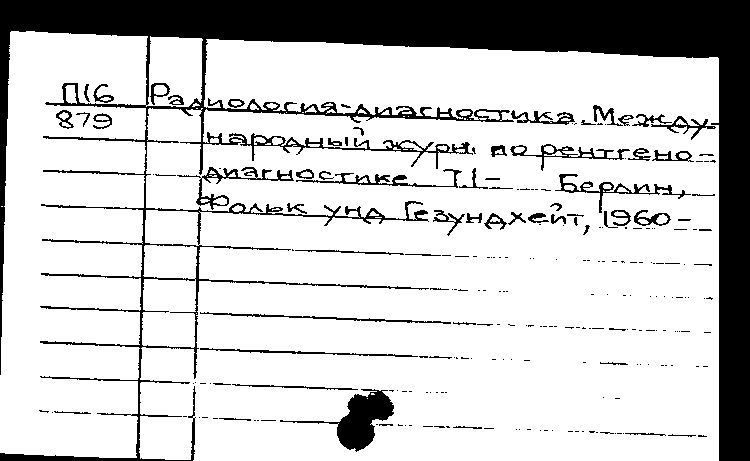 П16 Радиология-диагностика. Между-
879 народный журн. по рентгено-
диагностике. Т.1- Берлин,
Фольк унд Гезундхейт, 1960-